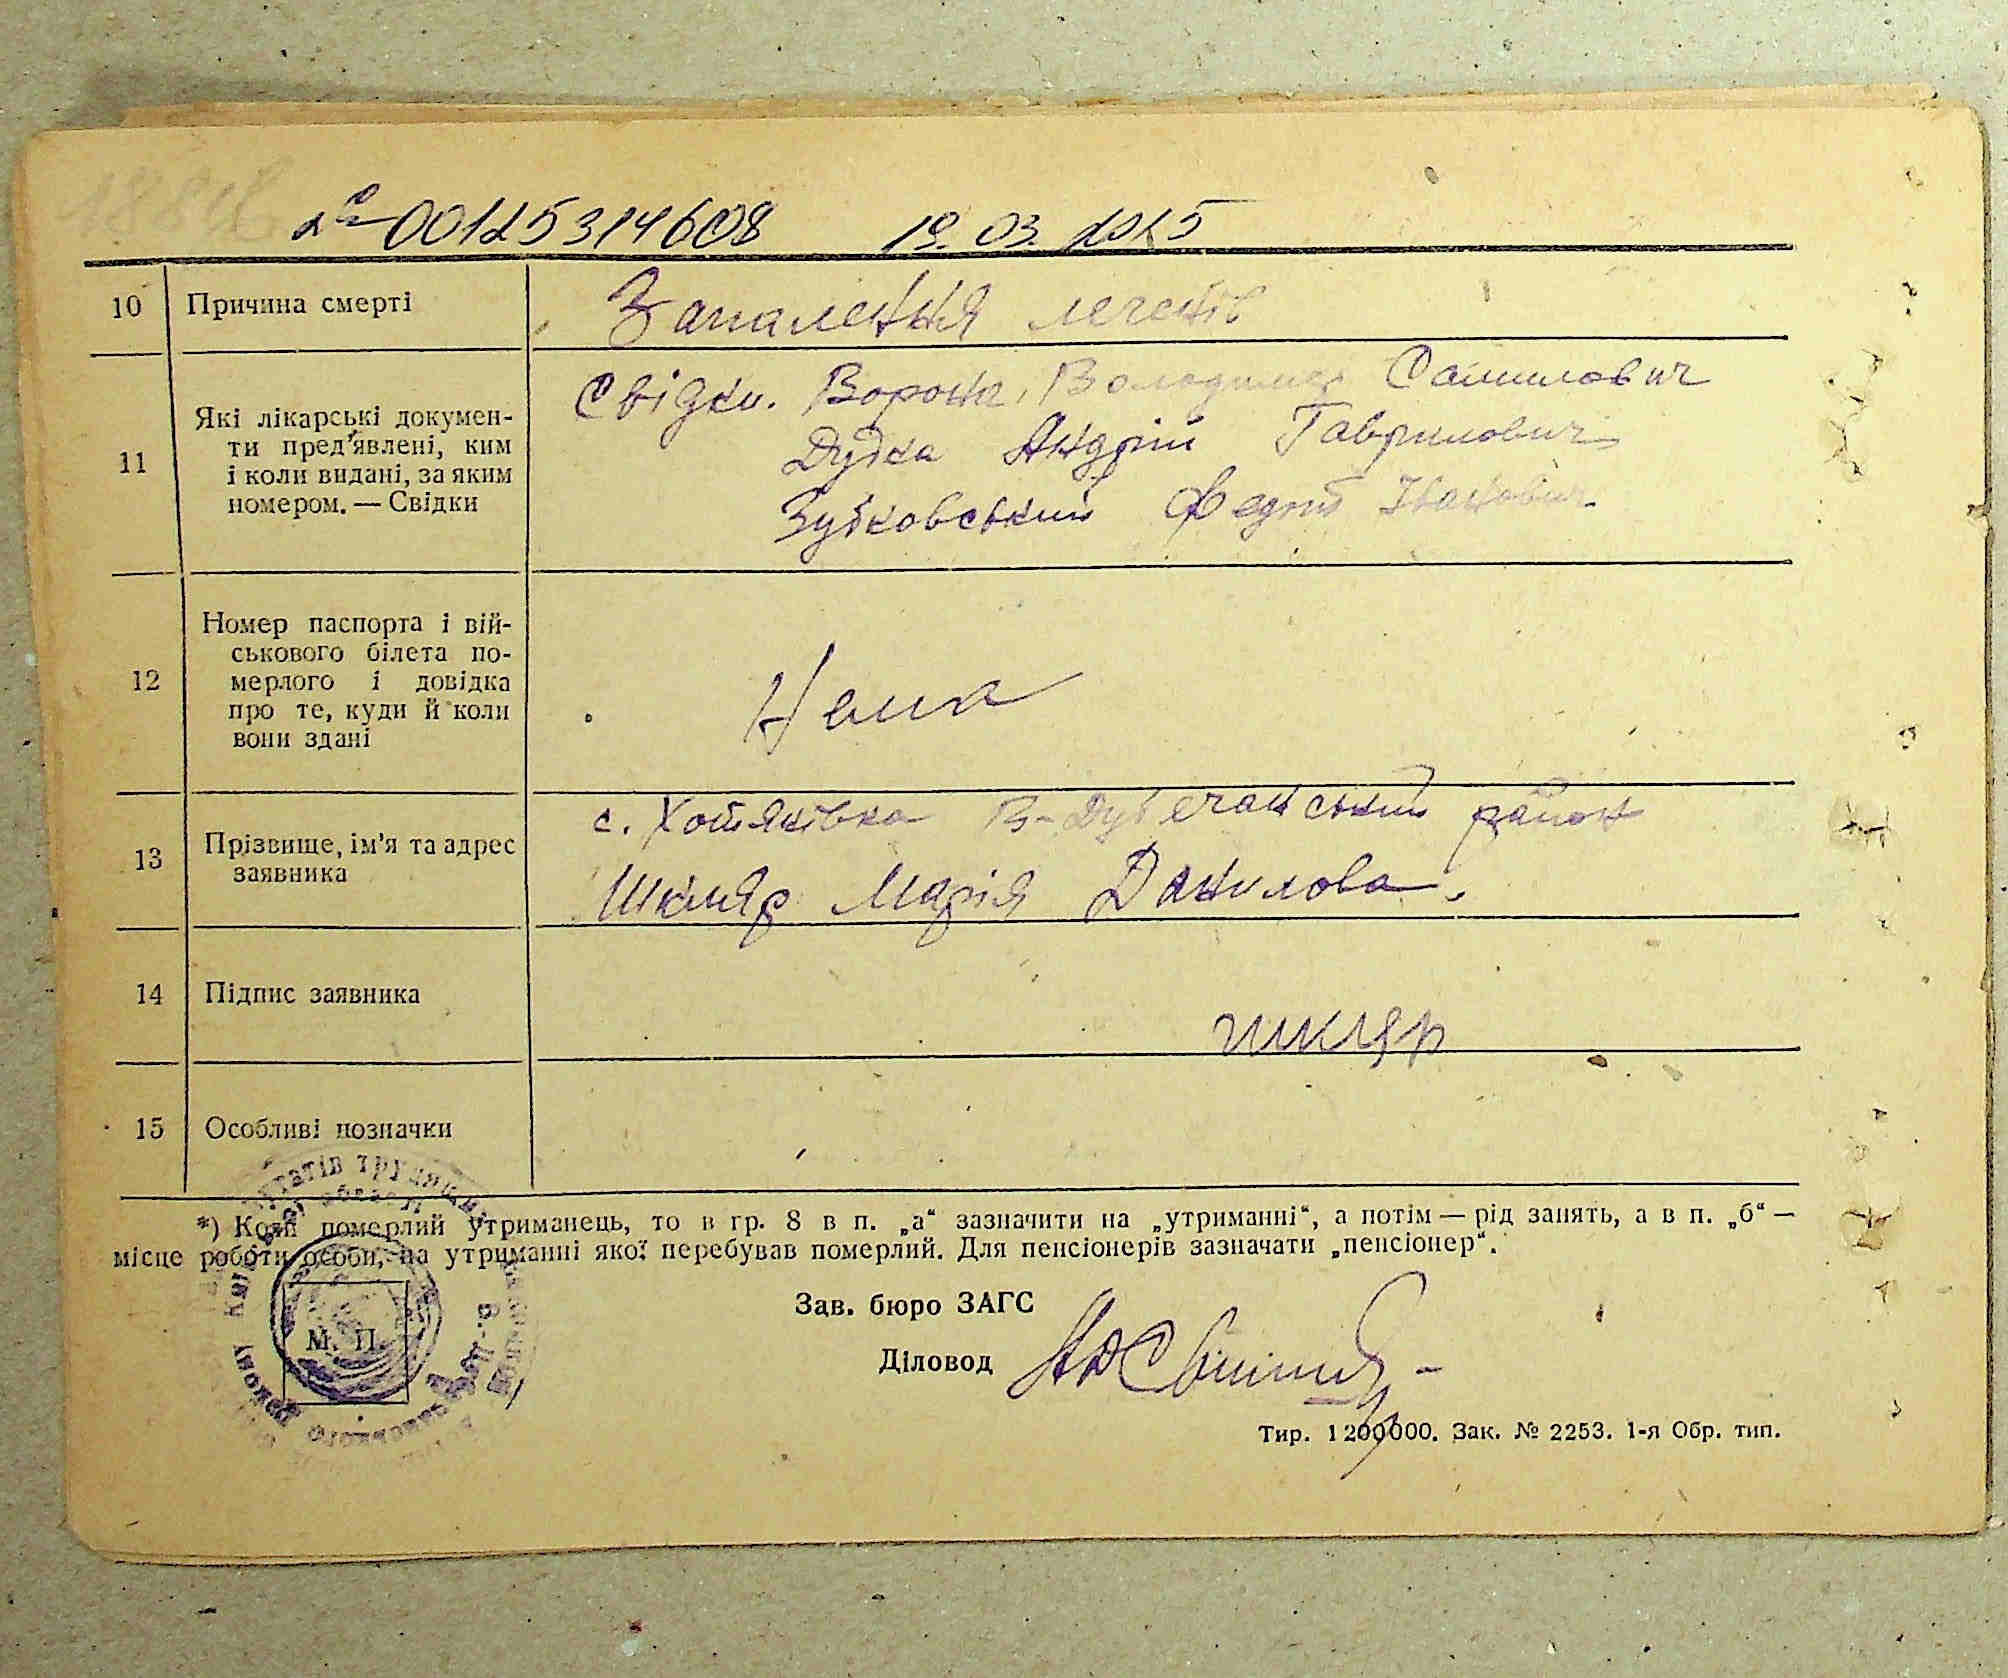 № 00125314608 19.03.2025
10 Причина смерті Запалення легенів
11 Які лікарські докумен-
ти пред'явлені, ким
і коли видані, за яким
номером. — Свідки
Свідки. Ворона, Володимер Самилович
Дудка Андрій Гаврилович
Зубковський Федот Іванович
12 Номер паспорта і вій-
ськового білета по-
мерлого і довідка
про те, куди й коли
вони здані
Нема
13 Прізвище, ім'я та адрес
заявника
с. Хотянівка В-Дубечанський район
Шкляр Марія Данилова.
14 Підпис заявника Шкляр
15 Особливі позначки
*) Коли померлий утриманець, то в гр. 8 в п. „а“ зазначити на „утриманні“, а потім — рід занять, а в п. „б“ —
місце роботи особи, на утриманні якої перебував померлий. Для пенсіонерів зазначати „пенсіонер“.
М. П.
Зав. бюро ЗАГС
Діловод
Тир. 1 200000. Зак. № 2253. 1-я Обр. тип.